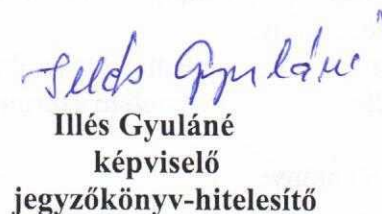 Illés Gyuláné
Illés Gyuláné
képviselő
jegyzőkönyv-hitelesítő